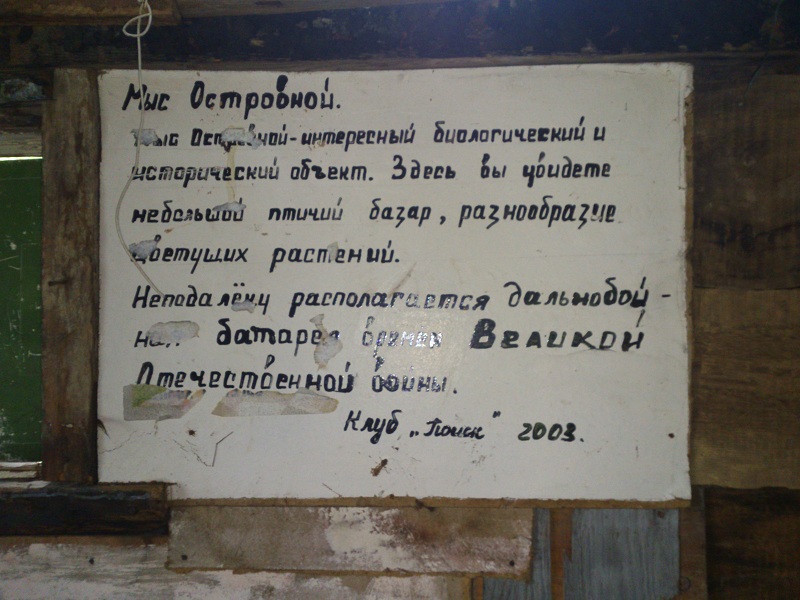 Мыс Островной.
Мыс Островной - интересный биологический и
исторический объект. Здесь вы увидете
небольшой птичий базар, разнообразие
цветущих растений.
Неподалёку располагается дальнобой-
ная батарея времен Великой
Отечественной войны.
Клуб „Поиск" 2003.